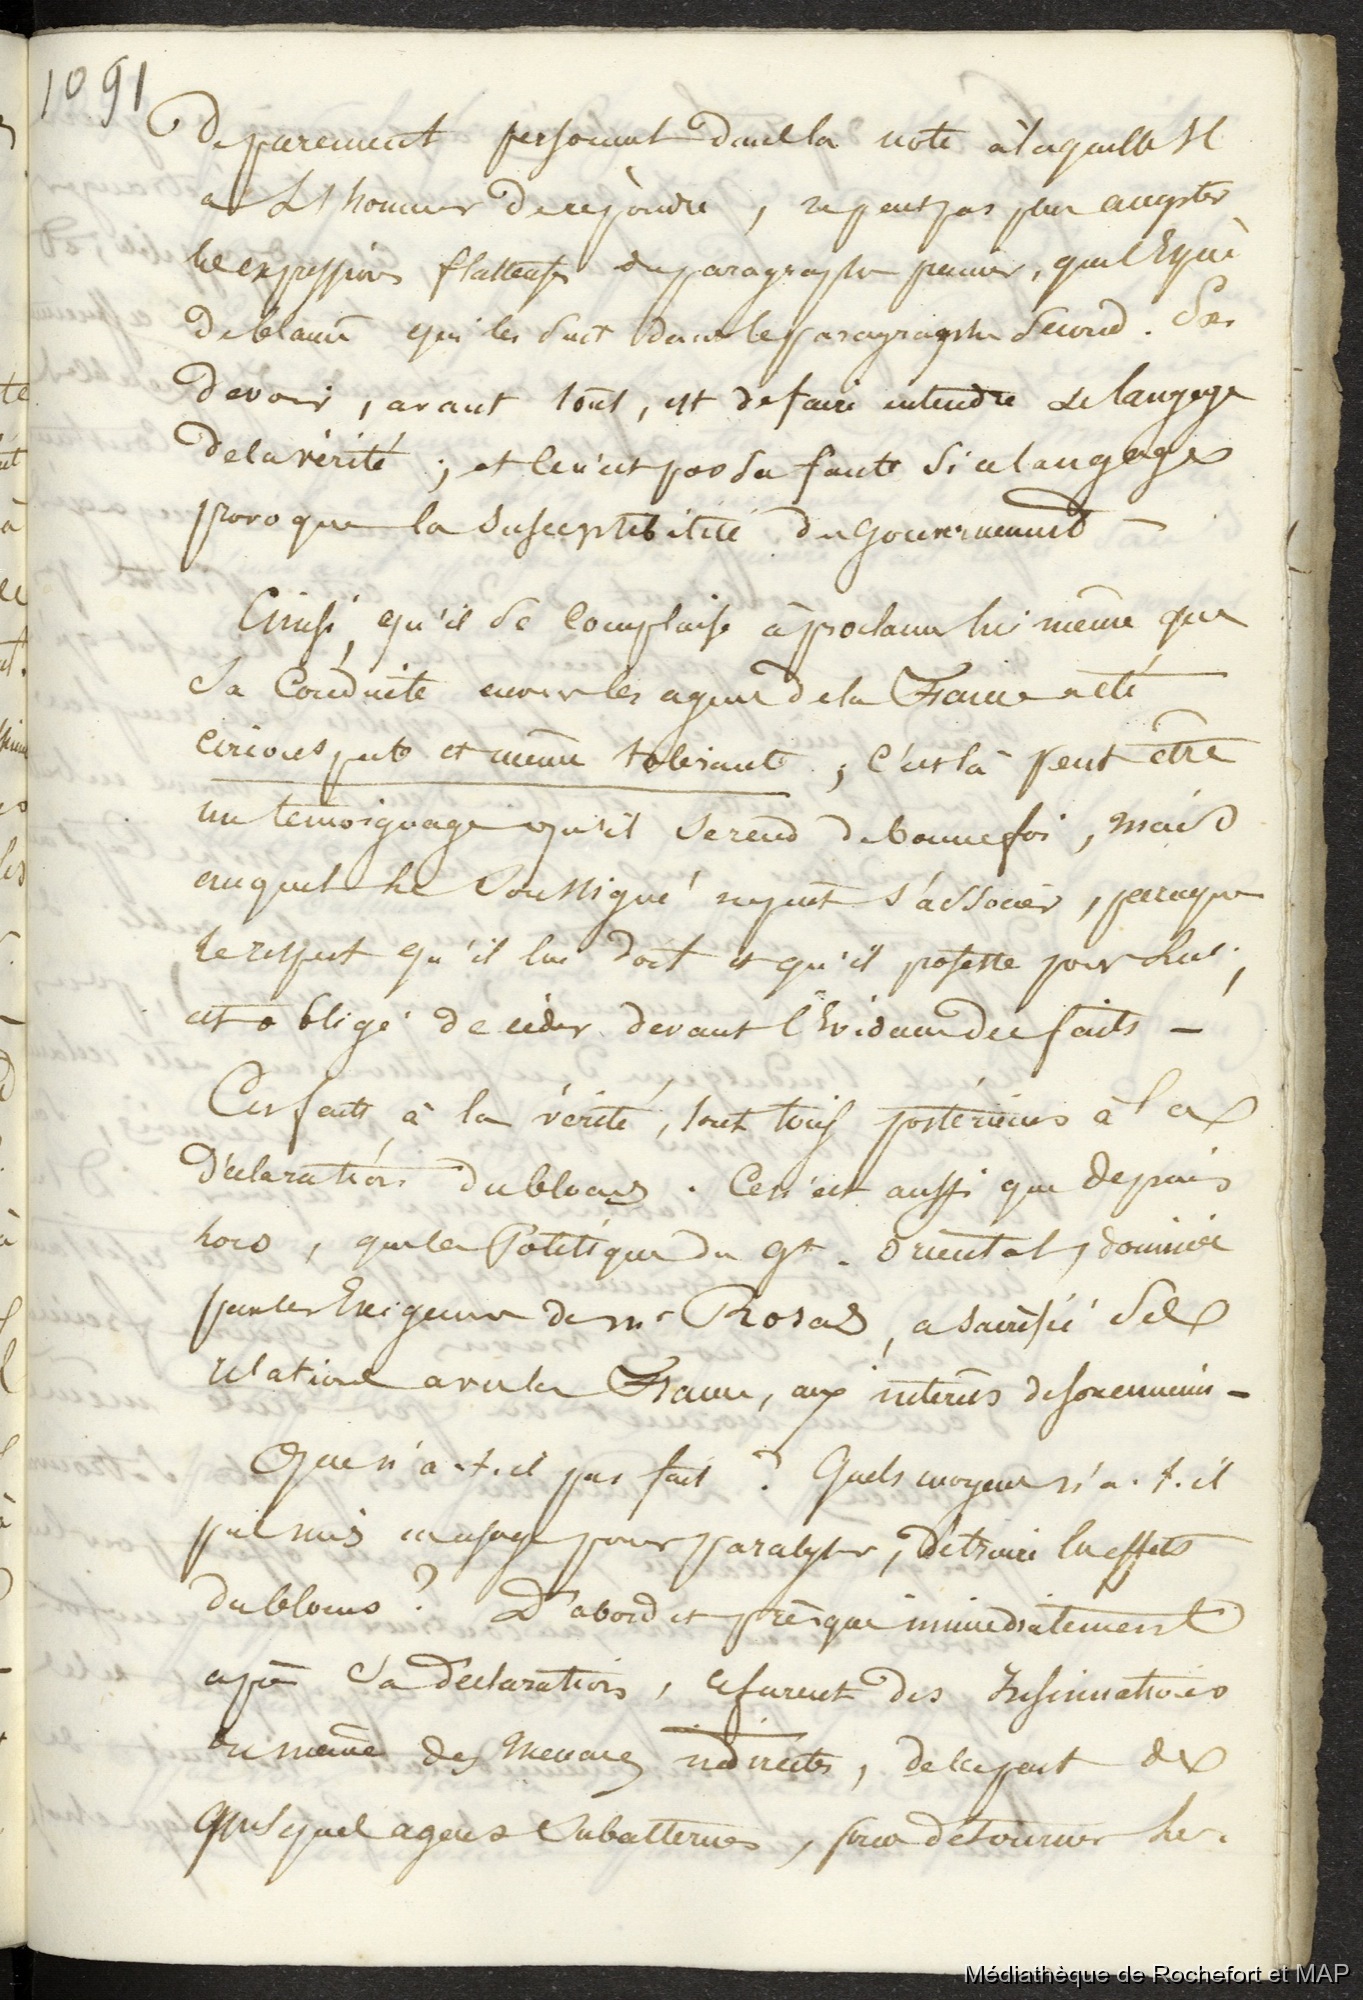 1091
De purement personnel dans la note à laquelle Il
a L'honneur de répondre, ne peut pas plus accepter
les expressions flatteuses du paragraphe premier, que l'Espèce
de blame qui les suit dans le paragraphe Second. Son
devoir, avant tout, est de faire entendre Le langage
de la vérité ; et ce n'est pas sa faute Si ce langage
provoque la Susceptibilité du Gouvernement —
Ainsi, qu'il Se Complaise à proclamer lui même que
Sa Conduite envers les agens de la France a été
circonspecte et même tolérante ; C'est là peut être
un temoignage qu'il Se rend de bonne foi, mais
auquel le Soussigné ne peut s'associer, parceque
le respect qu'il lui doit et qu'il professe pour Lui,
est obligé de céder devant l'Evidence des faits —
Ces faits, à la vérité, sont tous postérieurs à la
Déclaration du blocus. Ce n'est aussi que depuis
lors, que la Politique du Gt. Oriental, dominée
par les Exigences de mr Rosas, a sacrifié Ses
relations avec la France, aux intérets de son ennemi —
Que n'a-t-il pas fait ? Quels moyens n'a-t-il
pas mis en usage pour paralyser, détruire les effets
du blocus ? D'abord et presque immediatement
après Sa déclaration, ce furent des Insinuations
ou même des Menaces indirectes, de la part de
quelques agens Subalternes, pour détourner les
Médiathèque de Rochefort et MAP